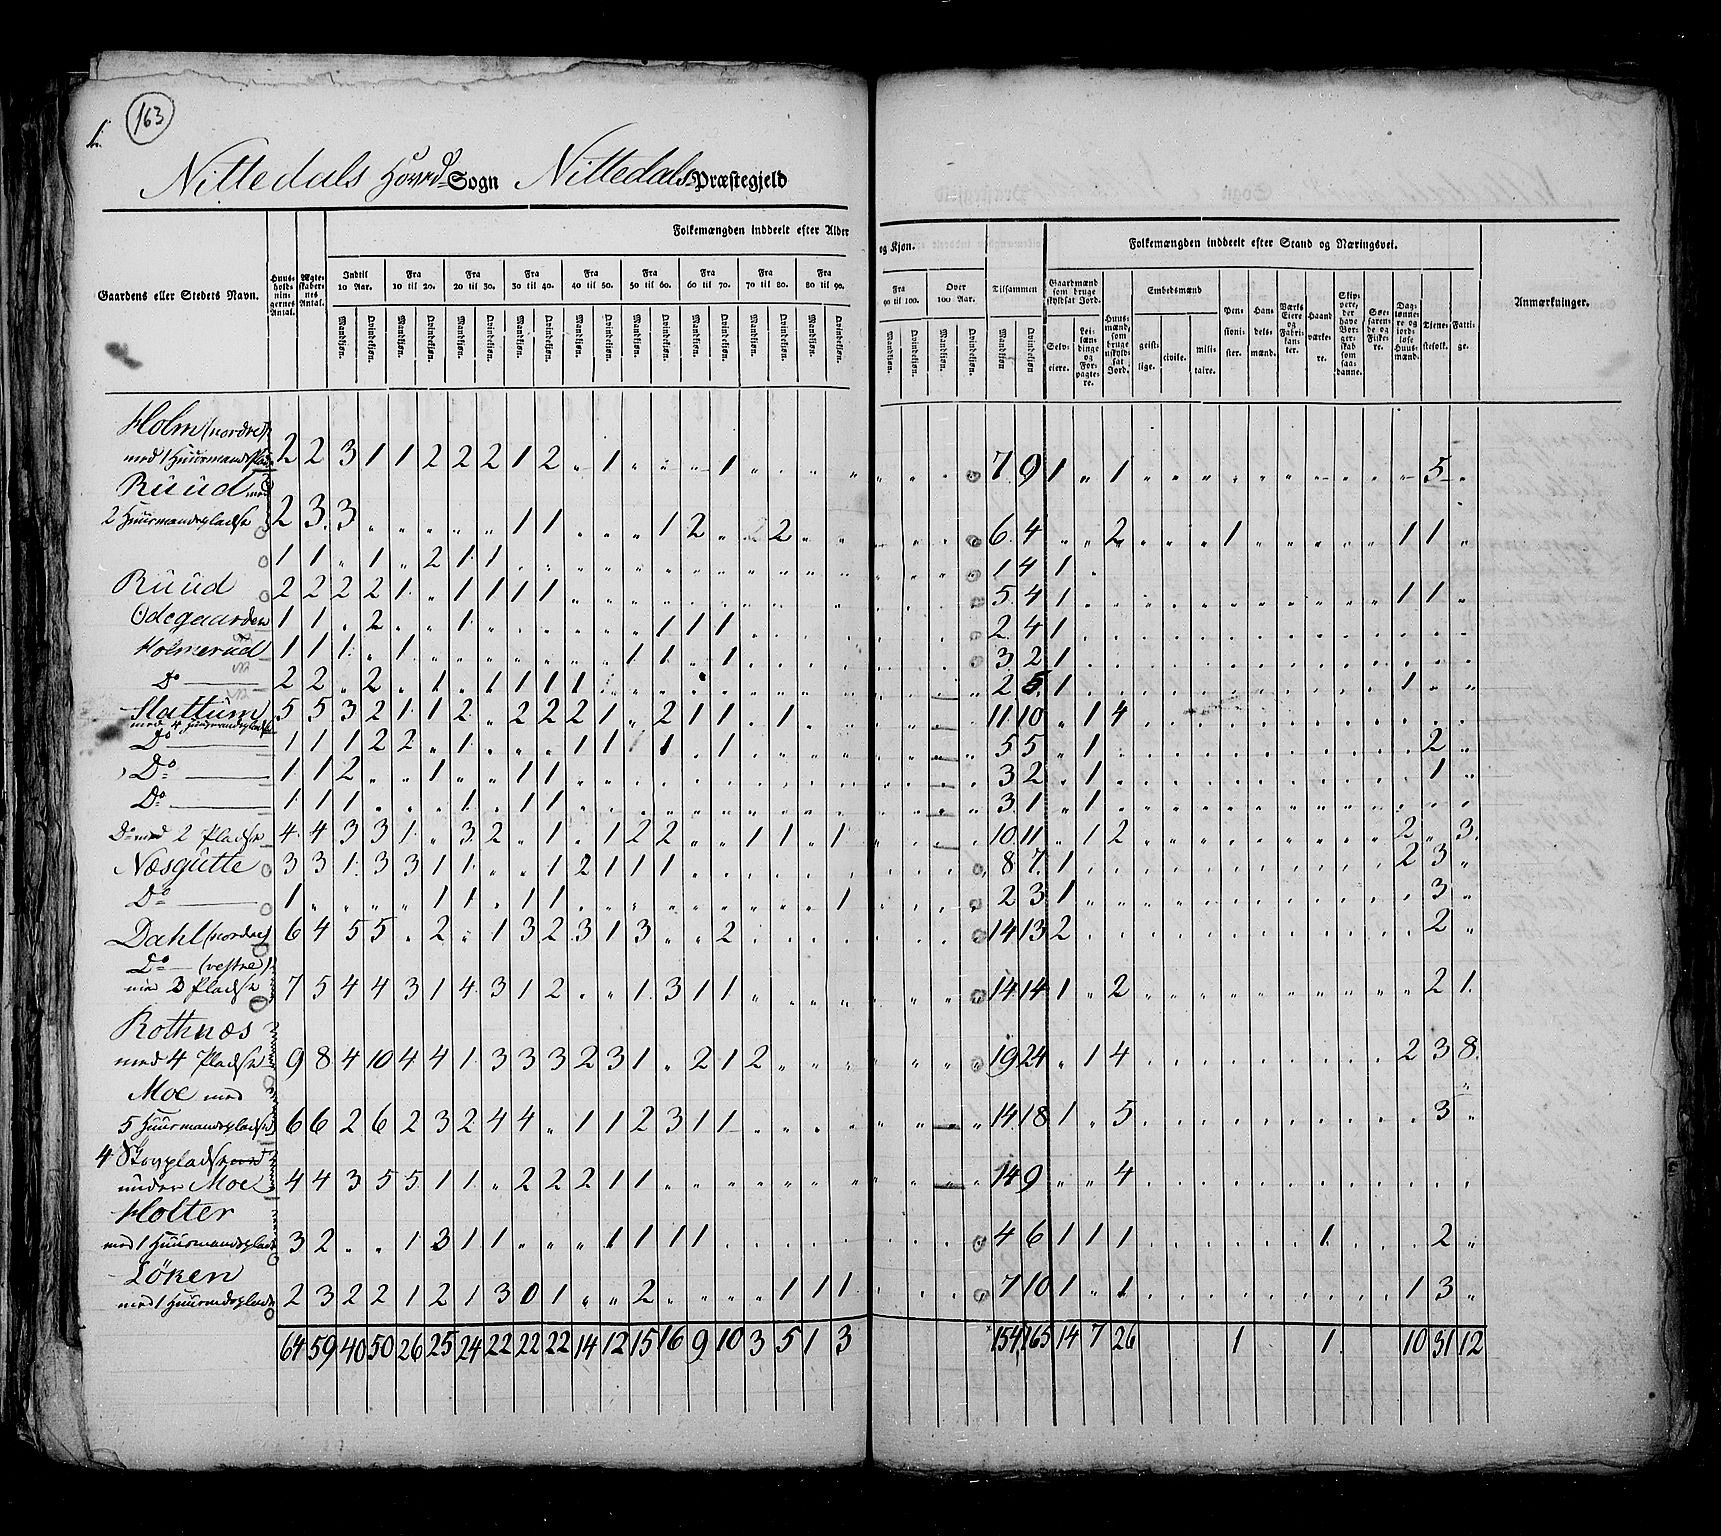 1.
163
Nittedals Hoved-Sogn Nittedals Præstegjeld
Folkemængden inddeelt efter Alder og Kjøn.
Folkemængden inddeelt efter Stand og Næringsvei.
Gaardens eller Stedets Navn.
Huusholdningernes Antal.
Ægteskabernes Antal.
Indtil 10 Aar.
Fra 10 til 20.
Fra 20 til 30.
Fra 30 til 40.
Fra 40 til 50.
Fra 50 til 60.
Fra 60 til 70.
Fra 70 til 80.
Fra 80 til 90.
Fra 90 til 100.
Over 100 Aar.
Tilsammen
Mandkjøn. Qvindekjøn.
Gaardmænd som bruge skyldsat Jord.
Selveiere.
Leilændinge og Forpagtere.
Huusmænd, som bruge uskyldsat Jord.
Embedsmænd
geistlige. civile. militaire.
Pensionister.
Handelsmænd.
Værks Eiere og Fabrikanter.
Haandværkere.
Skippere, der have Borgerskab som saadanne.
Søefarende og Fiskere.
Daglønnere og jordløse Huusmænd.
Tjenestefolk.
Fattige.
Anmærkninger.
Holm (nordre)
med 1 Huusmandsplads 2 2 3 1 1 2 2 2 1 2 „ 1 „ „ „ 1 „ „ „ „ 7 9 1 „ 1 5
Ruud med
2 Huusmandspladse 2 3 3 „ „ „ „ „ 1 1 „ „ „ 1 2 „ 2 2 „ „ 6 4 „ „ 2 1 1 1
1 1 „ 1 „ 2 1 1 1 4 1
Ruud 2 2 2 2 1 „ 1 1 1 1 5 4 1 1 1
Ødegaarden 1 1 „ 2 „ „ 1 „ „ „ „ „ „ 1 1 1 2 4 1
Holmerud 1 1 1 „ 1 „ „ „ „ „ „ „ 1 1 „ 1 3 2 1
Do 2 2 „ 2 „ 1 „ 1 1 1 1 2 5 1 1
Slattum 5 5 3 2 1 1 2 „ 2 2 2 1 „ 2 1 1 „ 1 11 10 „ 1 4
med 4 Huusmandspladse
Do 1 1 1 2 2 „ 1 „ „ „ 1 1 „ 1 „ 1 5 5 „ 1 2
Do 1 1 2 „ „ 1 „ „ 1 1 3 2 „ 1 1
Do 1 1 1 „ „ „ 1 „ 1 1 3 1 „ 1
Do med 2 Pladse 4 4 3 3 1 „ 3 2 „ 1 „ 1 2 2 „ „ 1 1 „ 1 10 11 „ 1 2 2 „ 3
Næsgutte 3 3 1 3 3 1 1 „ „ 1 2 1 1 1 8 7 1 2 3
Do 1 „ „ „ „ 1 1 „ 1 1 1 2 3 1 3
Dahl (nordre) 6 4 5 5 „ 2 „ 1 3 2 3 1 3 „ „ 2 14 13 2 2
Do (vestre)
med 3 Pladse 7 5 4 4 3 1 4 3 1 2 „ „ 1 3 1 1 14 14 1 „ 2 2 1
Rothnæs
med 4 Pladse 9 8 4 10 4 4 1 3 3 3 2 3 1 „ 2 1 2 19 24 „ 1 4 2 3 8
Moe med
5 Huusmandspladse 6 6 2 6 2 3 2 4 4 „ 1 1 2 3 1 1 14 18 1 „ 5 3
4 Skovpladse
under Moe 4 4 3 5 5 1 1 „ 2 2 2 1 1 14 9 „ „ 4
Holter
med 1 Huusmandsplads 3 2 „ „ 1 3 1 1 „ „ „ 1 1 1 1 1 4 6 1 1 1 1 2
Löken
med 1 Huusmdsplads 2 3 2 2 1 2 1 3 0 1 „ „ 2 „ „ „ „ 1 1 1 7 10 1 „ 1 1 3
64 59 40 50 26 25 24 22 22 22 14 12 15 16 9 10 3 5 1 3 154 165 14 7 26 1 1 10 31 12